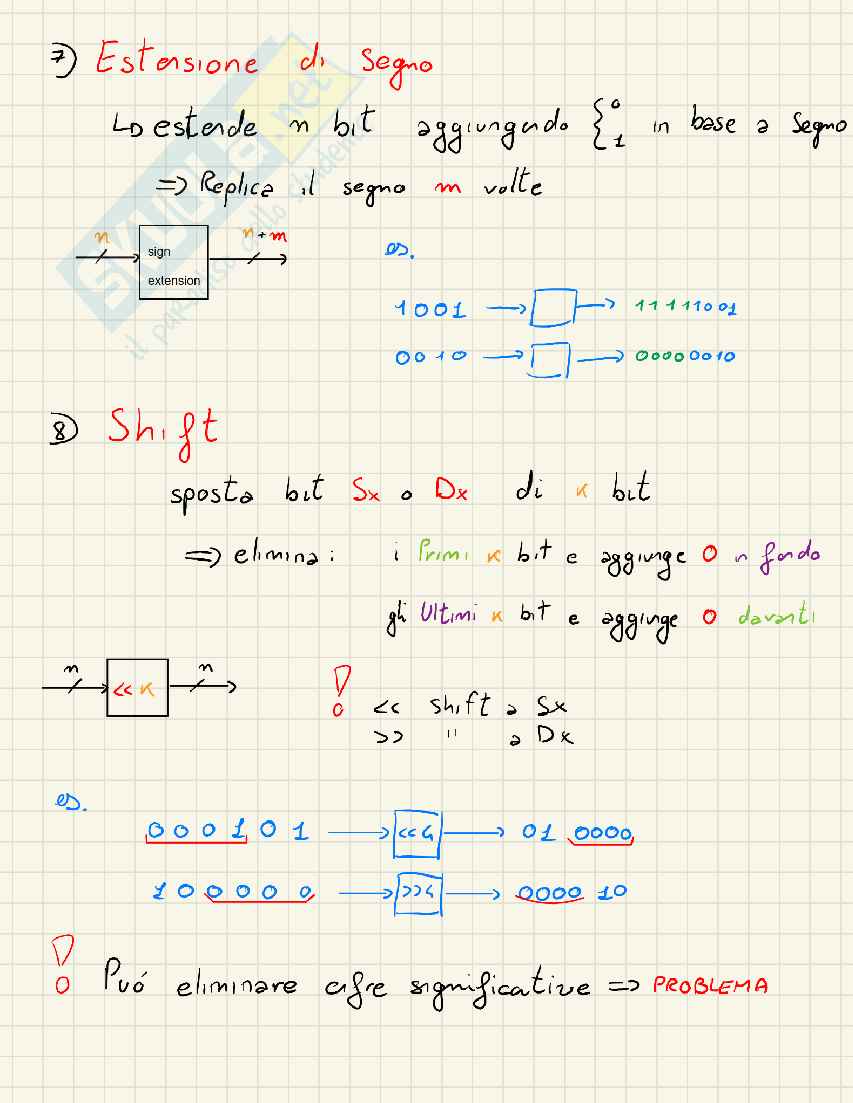 7) Estensione di Segno
↳ estende n bit aggiungendo { 0 1 in base a Segno
=> Replica il segno m volte
n sign extension n+m
es.
1001 → → 11111001
0010 → → 00000010
8) Shift
sposta bit Sx o Dx di k bit
=> elimina: i Primi k bit e aggiunge 0 in fondo
gli Ultimi k bit e aggiunge 0 davanti
n << k n
! << shift a Sx
>> " a Dx
es.
000101 → <<4 → 010000
100000 → >>4 → 000010
! Può eliminare cifre significative => PROBLEMA
SKUOLA.net
il paradiso dello studente